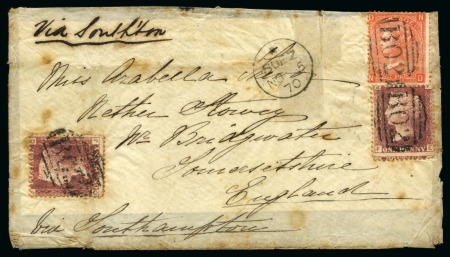 Via South'ton
Miss Arabella
Nether Stowey
Nr. Bridgwater
Somersetshire
England
Via Southampton
B02
B02
ONE PENNY
70